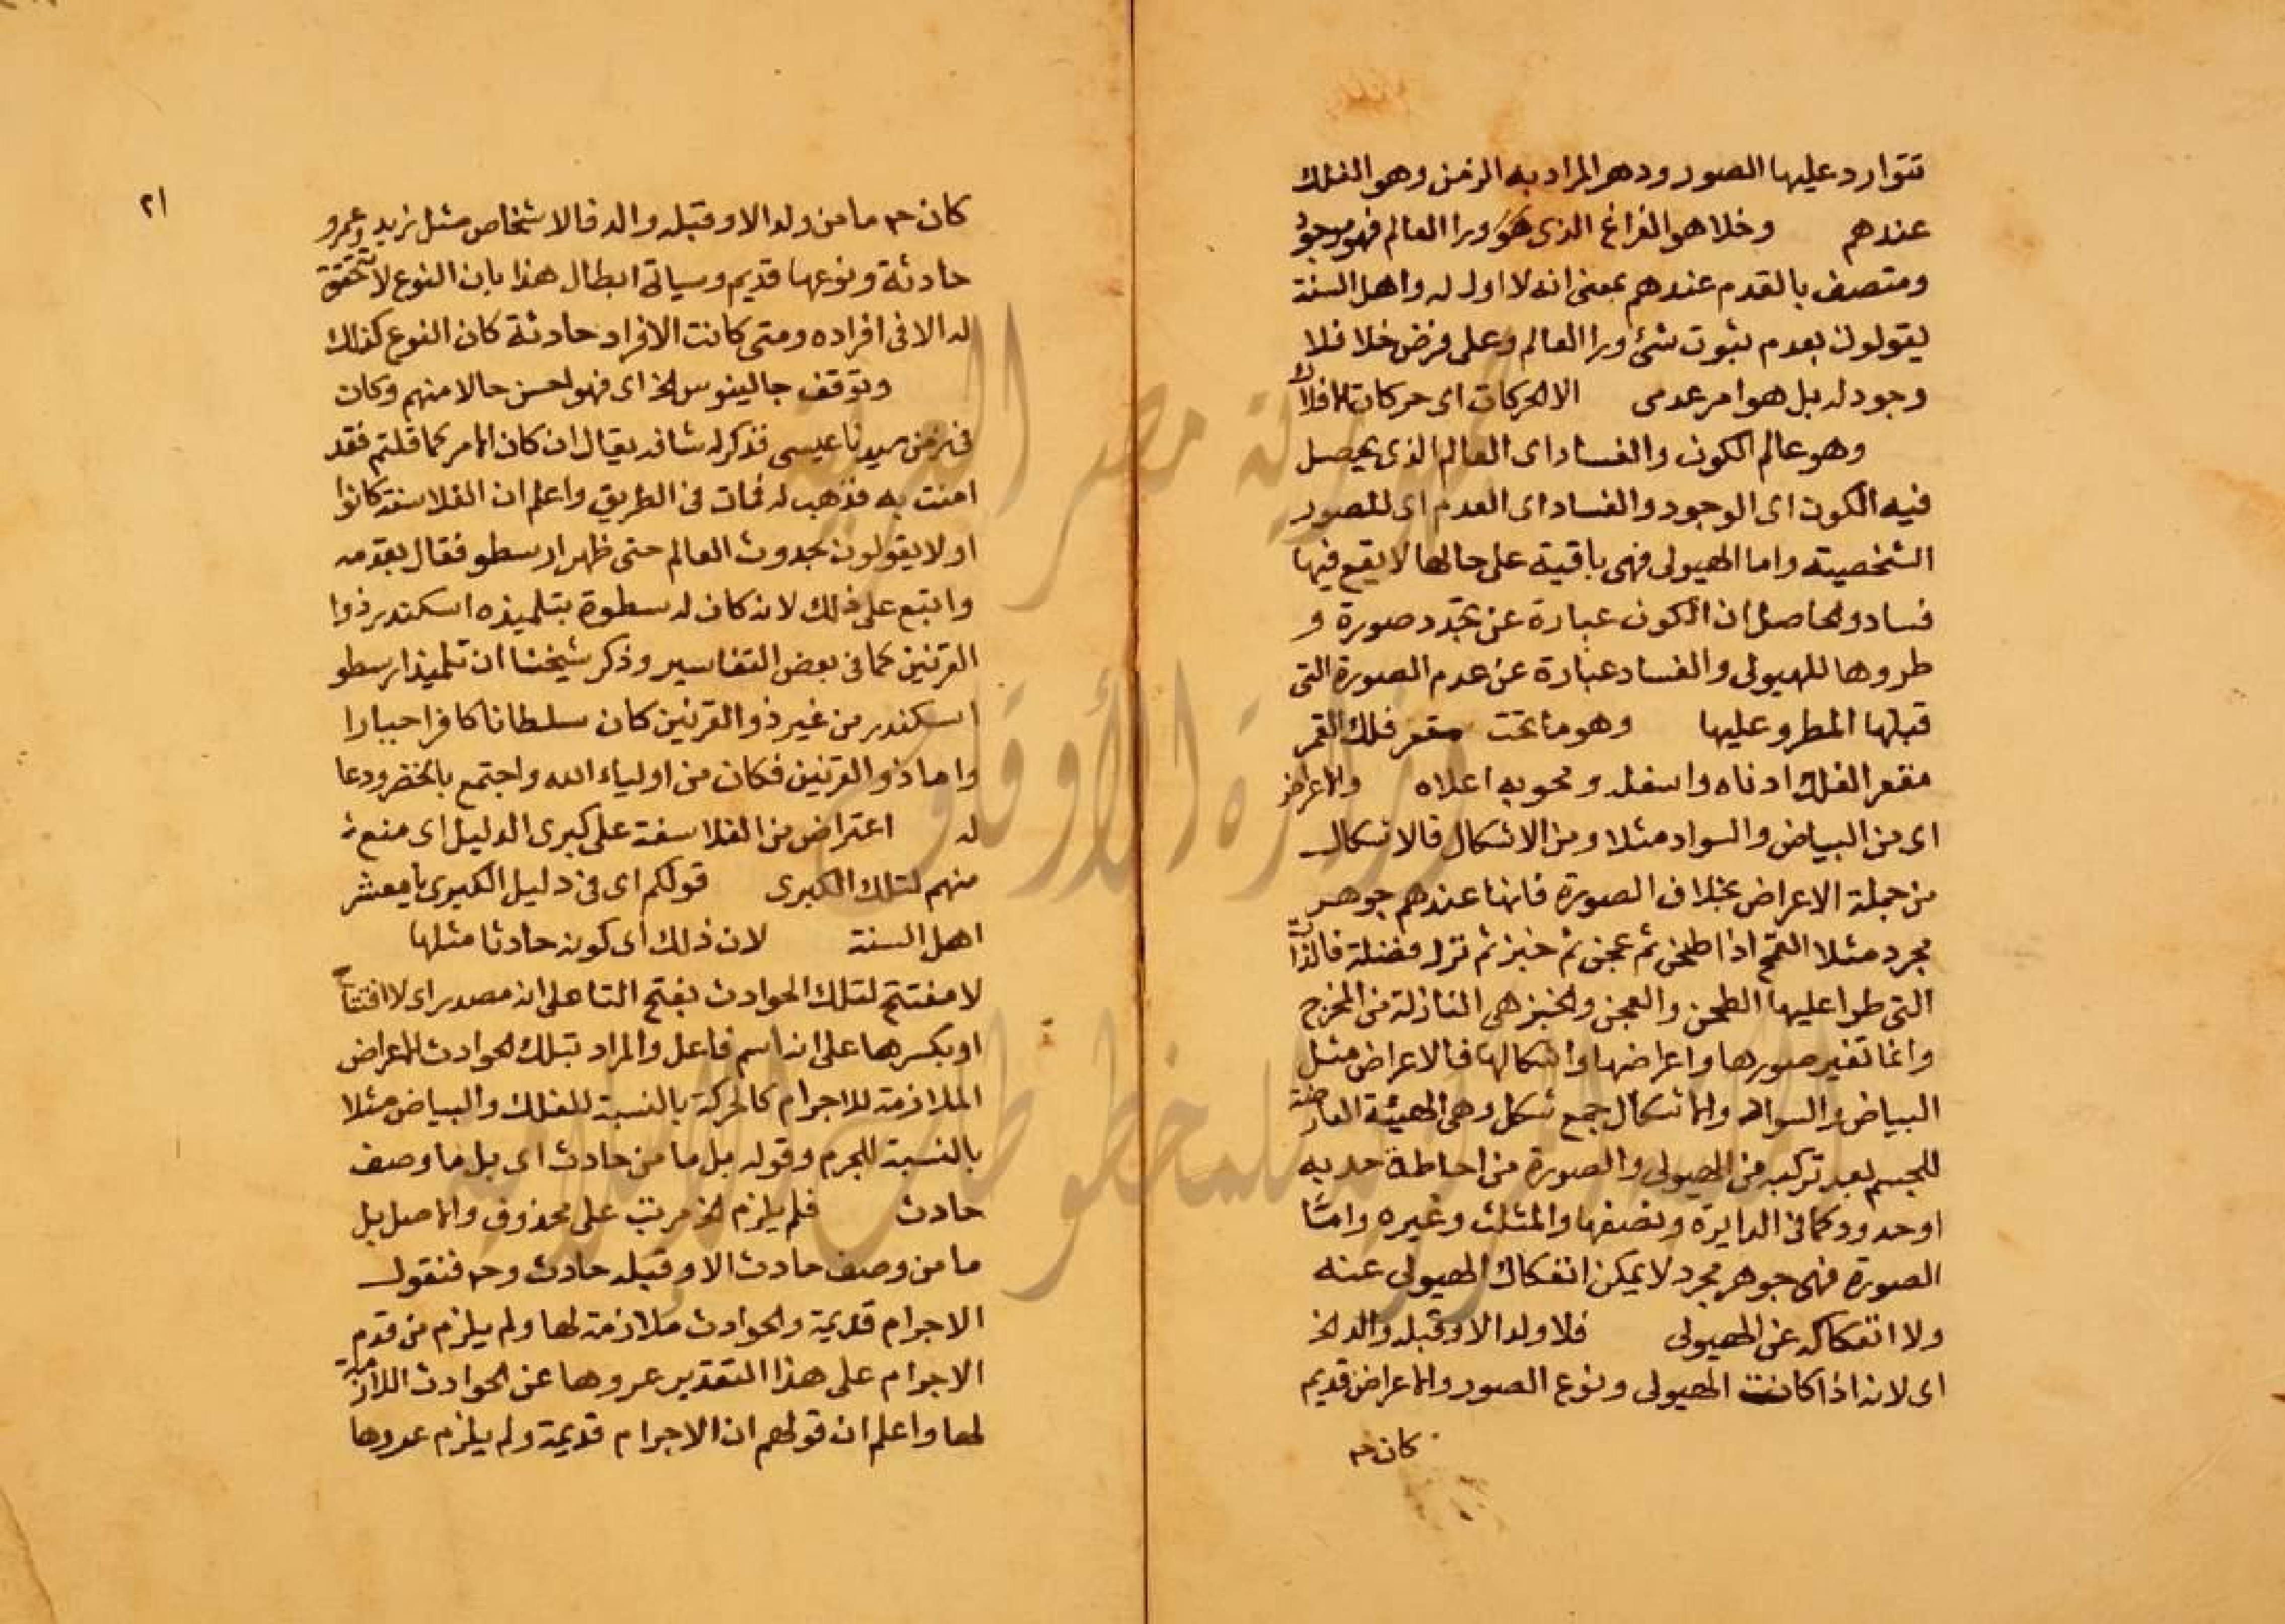 تتوارد عليها الصور ودهر المراد به الزمن وهو الفلك
عندهم وخلا هو الفراغ الذى هو ورا العالم فهو موجود
ومتصف بالقدم عندهم بمعنى انه لا اول له واهل السنة
يقولون بعدم ثبوت شئ ورا العالم وعلى فرض خلا فلا
وجود له بل هو امر عدمى الا الحركات اى حركات الافلاك
وهو عالم الكون والفساد اى العالم الذى يحصل
فيه الكون اى الوجود والفساد اى العدم اى للصور
الشخصية واما الهيولى فهى باقية على حالها لا يقع فيها
فساد والحاصل ان الكون عبارة عن تجدد صورة و
طروها للهيولى والفساد عبارة عن عدم الصورة التى
قبلها المطرو عليها وهو ما تحت مقعر فلك القمر
مقعر الفلك ادناه واسفله ومحوبه اعلاه والاعراض
اى من البياض والسواد مثلا ومن الاشكال فالاشكال
من جملة الاعراض بخلاف الصورة فانها عندهم جوهر
مجرد مثلا القمح اذا طحن ثم عجن ثم خبز ثم نزل فضلة فالذات
التى طرا عليها الطحن والعجن والخبز هى النازلة من المخرج
وانما تغير صورها واعراضها واشكالها فالاعراض مثل
البياض والسواد والاشكال جمع شكل وهى الهيئة العارضة
للجسم بعد تركبه من الهيولى والصورة من احاطة حد به
او حدود كما فى الدايرة ونصفها والمثلث وغيره واما
الصورة فهى جوهر مجرد لا يمكن انفكاك الهيولى عنه
ولا انفكاكه عن الهيولى فلا ولد الا وقبله والد الخ
اى لانه اذا كانت الهيولى ونوع الصور والاعراض قديم
كان ح
٢١
كان ح ما من ولد الا وقبله والد فالاشخاص مثل زيد وعمرو
حادثة ونوعها قديم وسياتى ابطال هذا بان النوع لا تحقق
له الا فى افراده ومتى كانت الافراد حادثة كان النوع كذلك
وتوقف جالينوس الخ اى فهو احسن حالا منهم وكان
فى زمن سيدنا عيسى فذكر له شانه يقال ان كان الامر كما قلتم فقد
امنت به فذهب له فمات فى الطريق واعلم ان الفلاسفة كانوا
اولا يقولون بحدوث العالم حتى ظهر ارسطو فقال بقدمه
واتبع على ذلك لانه كان له سطوة بتلميذه اسكندر ذوا
القرنين كما فى بعض التفاسير وذكر شيخنا ان تلميذ ارسطو
اسكندر من غير ذو القرنين كان سلطانا كافرا جبارا
واما ذو القرنين فكان من اولياء الله واجتمع بالخضر ودعا
له اعتراض من الفلاسفة على كبرى الدليل اى منع
منهم لتلك الكبرى قولكم اى فى دليل الكبرى يا معشر
اهل السنة لان ذلك اى كونه حادثا مثلها
لا مفتتح لتلك الحوادث بفتح التا على انه مصدر اى لا افتتاح
او بكسرها على انه اسم فاعل والمراد بتلك الحوادث الاعراض
الملازمة للاجرام كالحركة بالنسبة للفلك والبياض مثلا
بالنسبة للجرم وقوله بل ما من حادث اى بل ما وصف
حادث فلم يلزم الخ مرتب على محذوف والاصل بل
ما من وصف حادث الا وقبله حادث وح فنقول
الاجرام قديمة والحوادث ملازمة لها ولم يلزم من قدم
الاجرام على هذا التقدير عروها عن الحوادث اللازمة
لها واعلم ان قولهم ان الاجرام قديمة ولم يلزم عروها